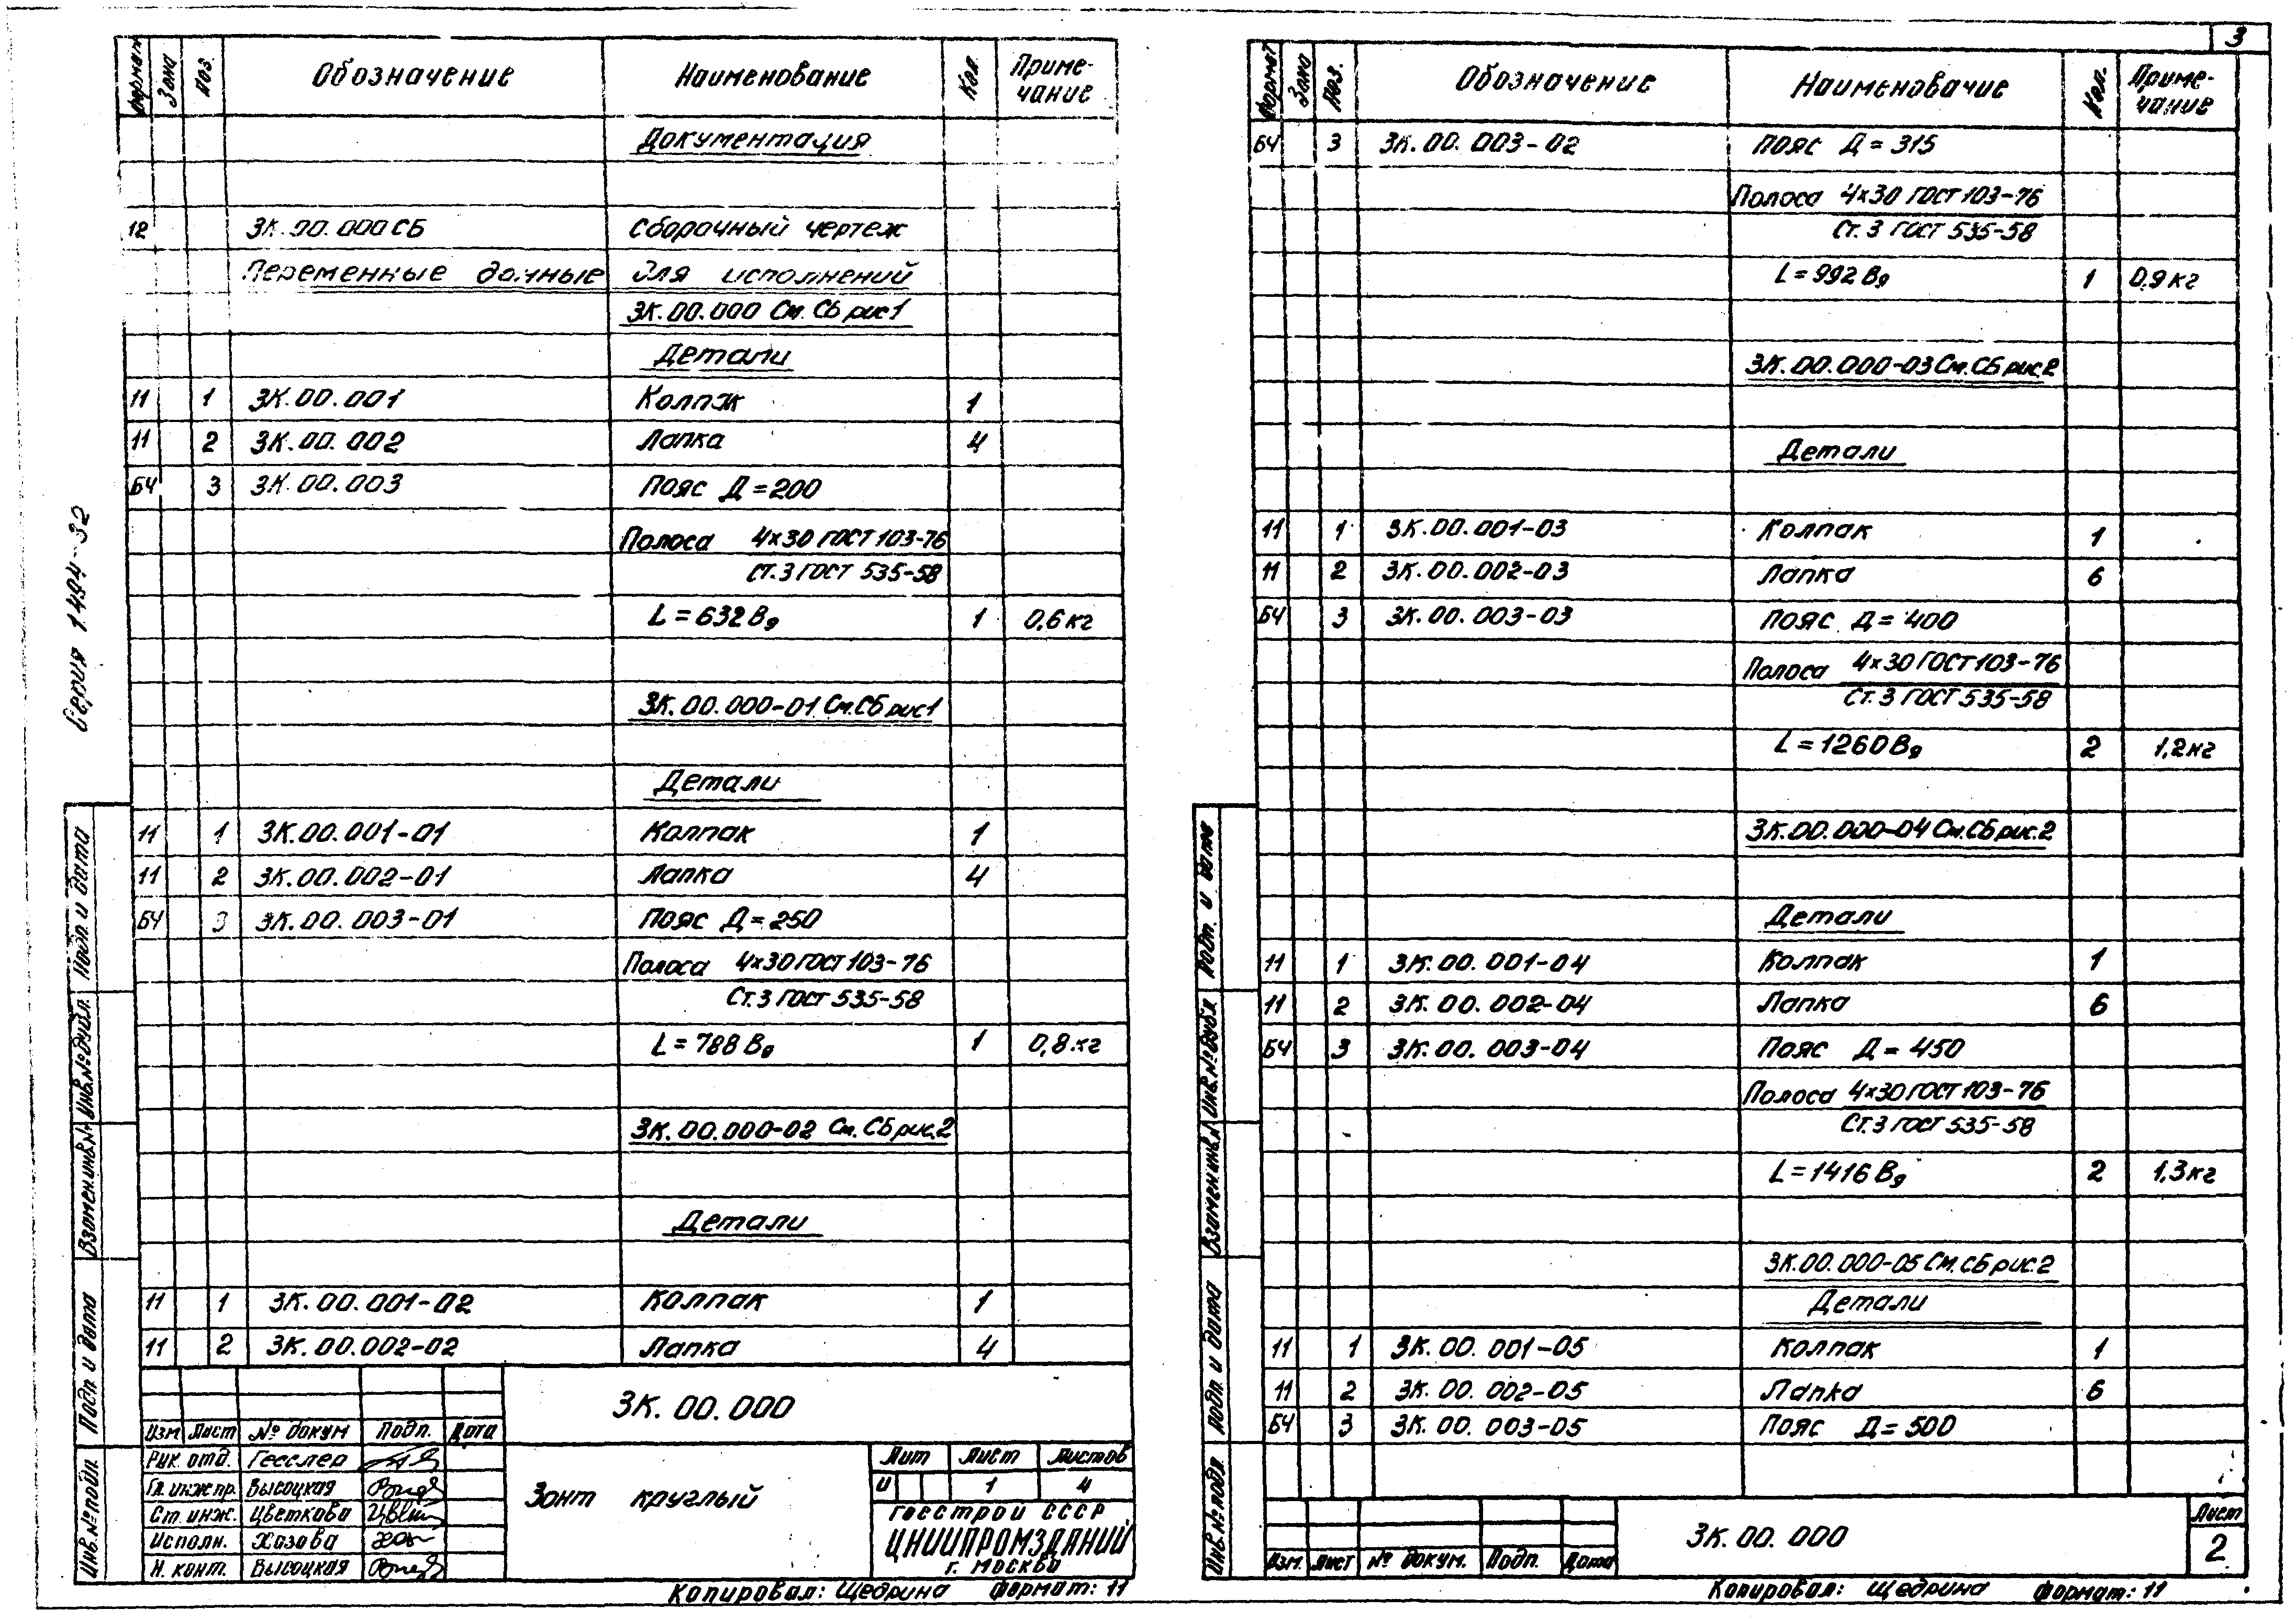 Серия 1.494-32
Формат Зона Поз. Обозначение Наименование Кол. Приме-
чание
Документация
12 ЗК.00.000 СБ Сборочный чертеж
Переменные данные для исполнений
ЗК.00.000 См. СБ рис 1
Детали
11 1 ЗК.00.001 Колпак 1
11 2 ЗК.00.002 Лапка 4
БЧ 3 ЗК.00.003 Пояс Д=200
Полоса 4×30 ГОСТ 103-76
Ст.3 ГОСТ 535-58
L=632 Вд 1 0,6 кг
ЗК.00.000-01 См.СБ рис 1
Детали
11 1 ЗК.00.001-01 Колпак 1
11 2 ЗК.00.002-01 Лапка 4
БЧ 3 ЗК.00.003-01 Пояс Д=250
Полоса 4×30 ГОСТ 103-76
Ст.3 ГОСТ 535-58
L=788 Вд 1 0,8 кг
ЗК.00.000-02 См. СБ рис.2
Детали
11 1 ЗК.00.001-02 Колпак 1
11 2 ЗК.00.002-02 Лапка 4
Инв.№ подл. Подп и дата Взамен инв.№ Инв.№ дубл. Подп. и дата
ЗК.00.000
Изм Лист № докум Подп. Дата
Рук. отд. Гесслер
Гл. инж пр. Высоцкая
Ст. инж. Цветкова
Исполн. Хазова
Н. конт. Высоцкая
Зонт круглый
Лит Лист Листов
И 1 4
Госстрой СССР
ЦНИИПРОМЗДАНИЙ
г. Москва
Копировал: Щедрина Формат: 11
3
Формат Зона Поз. Обозначение Наименование Кол. Приме-
чание
БЧ 3 ЗК.00.003-02 Пояс Д=315
Полоса 4×30 ГОСТ 103-76
Ст.3 ГОСТ 535-58
L=992 Вд 1 0,9 кг
ЗК.00.000-03 См.СБ рис.2
Детали
11 1 ЗК.00.001-03 Колпак 1
11 2 ЗК.00.002-03 Лапка 6
БЧ 3 ЗК.00.003-03 Пояс Д=400
Полоса 4×30 ГОСТ 103-76
Ст.3 ГОСТ 535-58
L=1260 Вд 2 1,2 кг
ЗК.00.000-04 См.СБ рис.2
Детали
11 1 ЗК.00.001-04 Колпак 1
11 2 ЗК.00.002-04 Лапка 6
БЧ 3 ЗК.00.003-04 Пояс Д=450
Полоса 4×30 ГОСТ 103-76
Ст.3 ГОСТ 535-58
L=1416 Вд 2 1,3 кг
ЗК.00.000-05 См.СБ рис.2
Детали
11 1 ЗК.00.001-05 Колпак 1
11 2 ЗК.00.002-05 Лапка 6
БЧ 3 ЗК.00.003-05 Пояс Д=500
Инв.№ подл Подп. и дата Взамен инв.№ Инв.№ дубл. Подп. и дата
Изм. Лист № докум. Подп. Дата
ЗК.00.000
Лист
2
Копировал: Щедрина Формат: 11